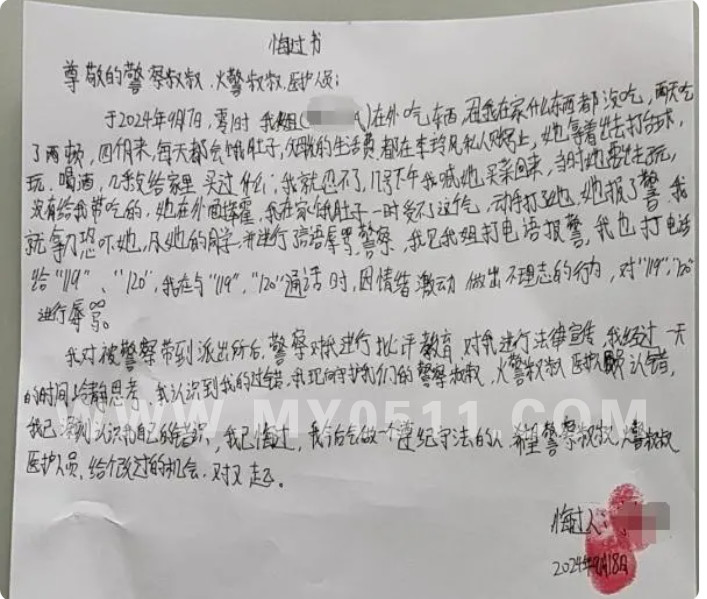 悔过书
尊敬的警察叔叔、火警叔叔、医护人员：
于2024年9月7日，零1时 我姐( A)在外吃东西，丑我在家什么东西都没吃，两天吃
了两顿，四个月来，每天都会饿肚子，父母的生活费，都在李玲凡私人账号上，她拿着出去打台球，
玩、喝酒，几乎没给家里买过什么，我就忍不了，几号下午我喊她买菜回来，当时她要出去玩，
没有给我带吃的，她在外面挥霍，我在家饿肚子一时受不了这个气，动手打了她，她报了警，我
就拿刀恐吓她，及她的同学，并进行言语辱骂警察，我见我姐打电话报警，我也打电话
给"119"、"120"，我在与"119"，"120"通话时，因情绪激动 做出不理志的行为，对"119"，"120"
进行辱骂。
我对被警察带到派出所后，警察对我进行批评教育，对我进行法律宣传，我经过一天
的时间冷静思考，我认识到我的过错，我现向守护我们的警察叔叔，火警叔叔 医护人员认错，
我已深刻认识到自己的错误，我已悔过，我今后会做一个遵纪守法的人 希望警察叔叔，火警叔叔
医护人员，给个改过的机会，对不起。
悔过人：
2024年9月18日
WWW.MY0511.COM